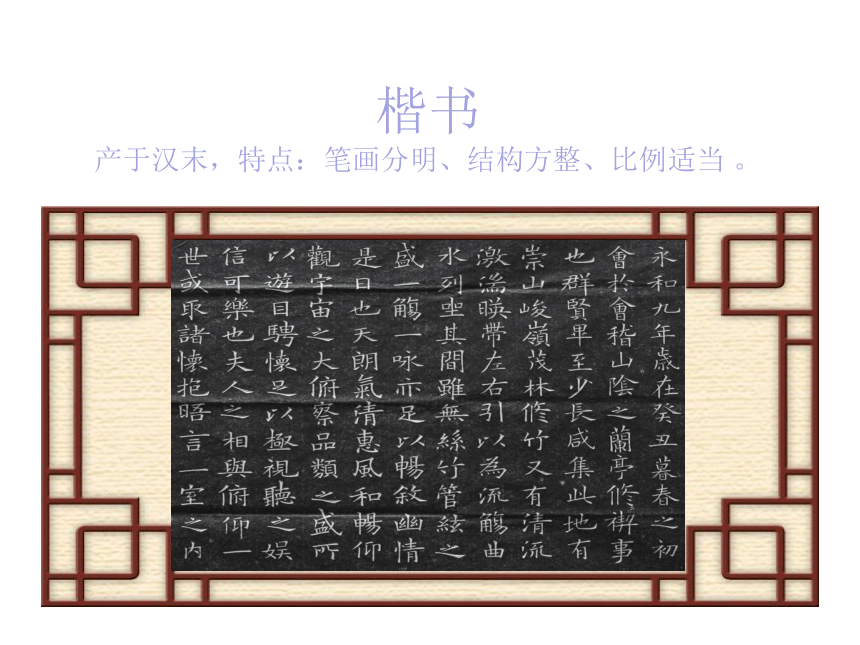 楷书
产于汉末，特点：笔画分明、结构方整、比例适当 。
永和九年歳在癸丑暮春之初
會於會稽山陰之蘭亭修禊事
也群賢畢至少長咸集此地有
崇山峻嶺茂林修竹又有清流
激湍暎帶左右引以為流觴曲
水列坐其間雖無絲竹管絃之
盛一觴一咏亦足以暢敘幽情
是日也天朗氣清惠風和暢仰
觀宇宙之大俯察品類之盛所
以遊目騁懷足以極視聽之娛
信可樂也夫人之相與俯仰一
世或取諸懷抱晤言一室之内